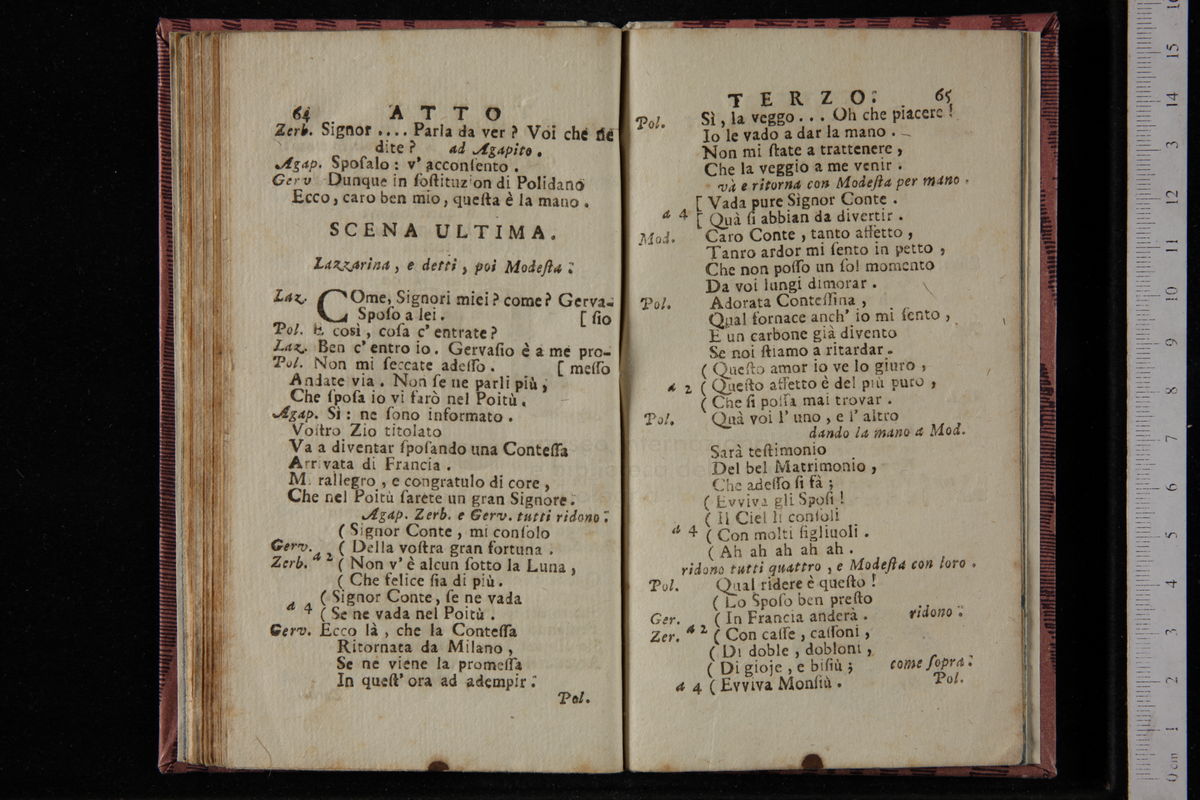 64 ATTO
Zerb. Signor .... Parla da ver ? Voi che ne
dite ? ad Agapito .
Agap. Sposalo : v' acconsento .
Gerv Dunque in sostituzion di Polidano
Ecco, caro ben mio, questa è la mano .
SCENA ULTIMA.
Lazzarina , e detti , poi Modesta :
Laz. COme, Signori miei ? come ? Gerva-
Sposo a lei . [ sio
Pol. E così , cosa c' entrate ?
Laz. Ben c' entro io . Gervasio è a me pro-
Pol. Non mi seccate adesso . [ messo
Andate via . Non se ne parli più ,
Che sposa io vi farò nel Poitù .
Agap. Sì : ne sono informato .
Vostro Zio titolato
Va a diventar sposando una Contessa
Arrivata di Francia .
Mi rallegro , e congratulo di core ,
Che nel Poitù sarete un gran Signore .
Agap. Zerb. e Gerv. tutti ridono :
( Signor Conte , mi consolo
Gerv. ( Della vostra gran fortuna .
Zerb. a 2 ( Non v' è alcun sotto la Luna ,
( Che felice sia di più .
( Signor Conte , se ne vada
a 4 ( Se ne vada nel Poitù .
Gerv. Ecco là , che la Contessa
Ritornata da Milano ,
Se ne viene la promessa
In quest' ora ad adempir :
Pol.
TERZO : 65
Pol. Sì , la veggo . . . Oh che piacere !
Io le vado a dar la mano .
Non mi state a trattenere ,
Che la veggio a me venir .
và e ritorna con Modesta per mano .
[ Vada pure Signor Conte .
a 4 [ Quà si abbian da divertir .
Mod. Caro Conte , tanto affetto ,
Tanro ardor mi sento in petto ,
Che non posso un sol momento
Da voi lungi dimorar .
Pol. Adorata Contessina ,
Qual fornace anch' io mi sento ,
E un carbone già divento
Se noi stiamo a ritardar .
( Questo amor io ve lo giuro ,
a 2 ( Questo affetto è del più puro ,
( Che si possa mai trovar .
Pol. Quà voi l' uno , e l' altro
dando la mano a Mod.
Sarà testimonio
Del bel Matrimonio ,
Che adesso si fà ;
( Evviva gli Sposi !
( Il Ciel li consoli
a 4 ( Con molti figliuoli .
( Ah ah ah ah ah .
ridono tutti quattro , e Modesta con loro .
Pol. Qual ridere è questo !
( Lo Sposo ben presto
Ger. ( In Francia anderà . ridono :
Zer. a 2 ( Con casse , cassoni ,
( Di doble , dobloni ,
( Di gioje , e bisiù ; come sopra :
a 4 ( Evviva Monsiù . Pol.